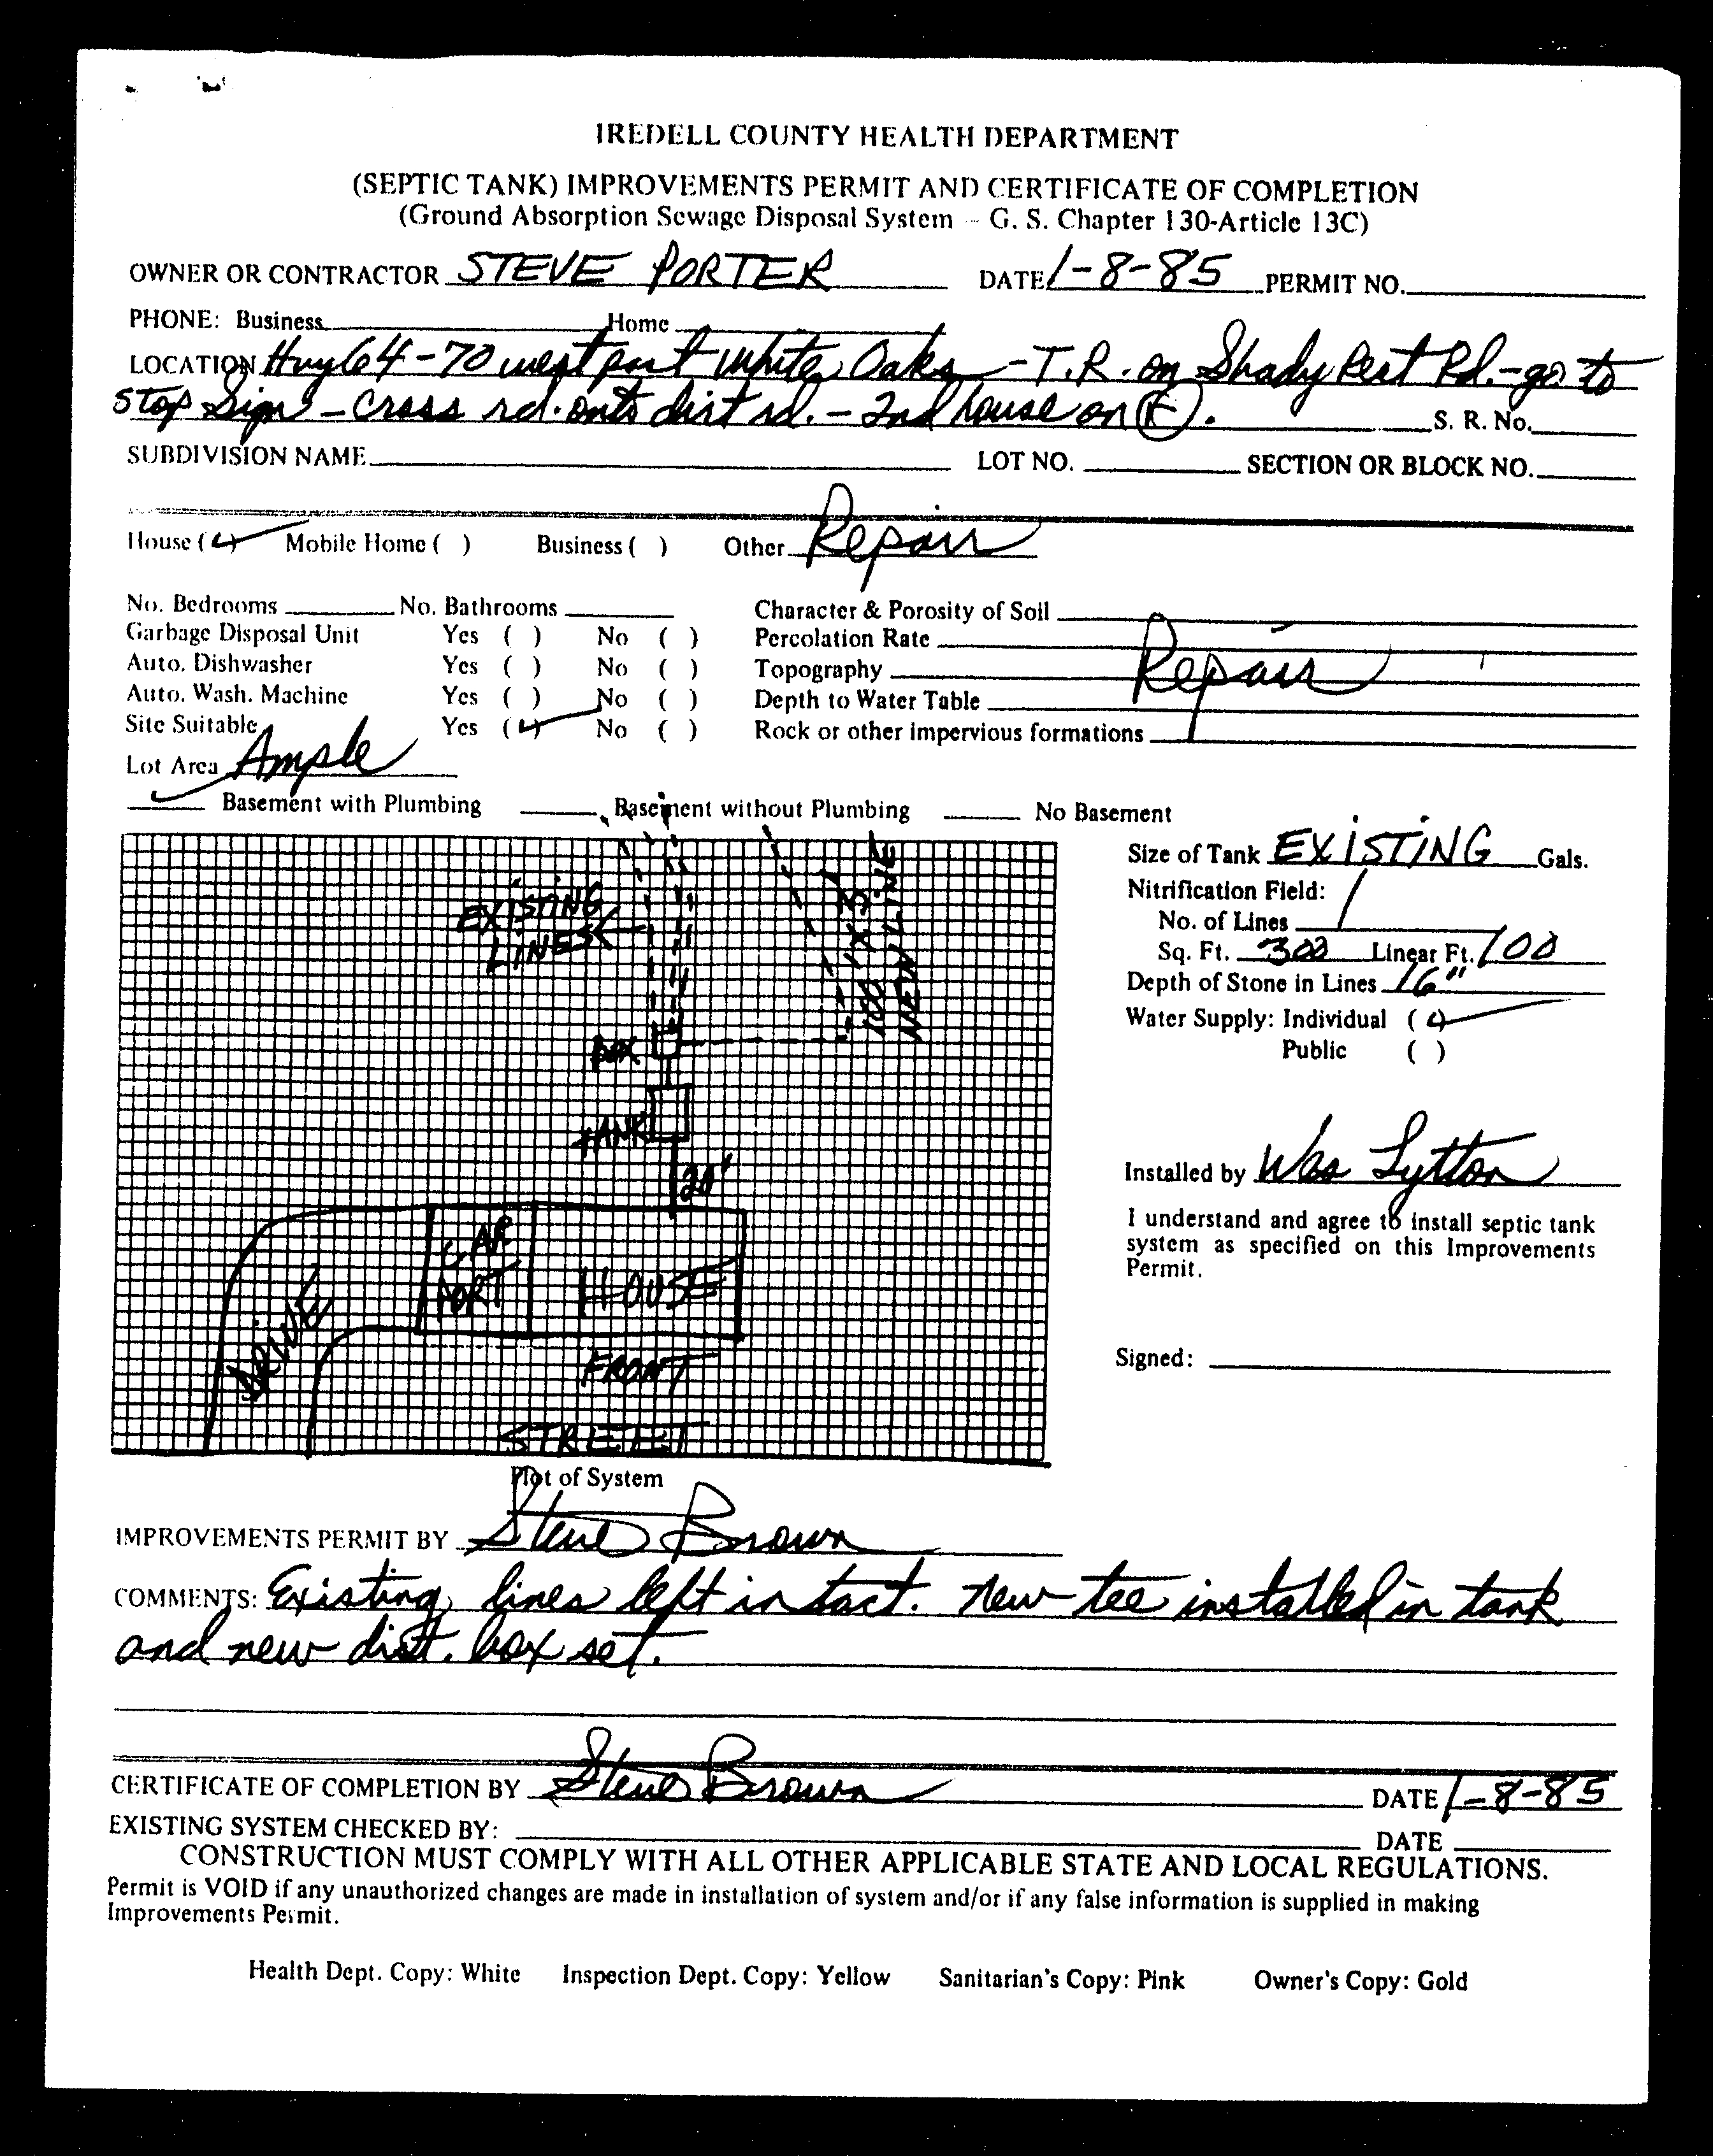 IREDELL COUNTY HEALTH DEPARTMENT
(SEPTIC TANK) IMPROVEMENTS PERMIT AND CERTIFICATE OF COMPLETION
(Ground Absorption Sewage Disposal System - G. S. Chapter 130-Article 13C)
OWNER OR CONTRACTOR STEVE PORTER DATE 1-8-85 PERMIT NO.
PHONE: Business Home
LOCATION Hwy 64-70 west past White Oaks - T.R. on Shady Rest Rd. - go to
Stop Sign - Cross rd. onto dirt rd. - 2nd house on . S. R. No.
SUBDIVISION NAME LOT NO. SECTION OR BLOCK NO.
House (✓) Mobile Home ( ) Business ( ) Other Repair
No. Bedrooms No. Bathrooms Character & Porosity of Soil
Garbage Disposal Unit Yes ( ) No ( ) Percolation Rate
Auto. Dishwasher Yes ( ) No ( ) Topography Repair
Auto. Wash. Machine Yes ( ) No ( ) Depth to Water Table
Site Suitable Yes (✓) No ( ) Rock or other impervious formations
Lot Area Ample
✓ Basement with Plumbing Basement without Plumbing No Basement
Size of Tank EXISTING Gals.
Nitrification Field:
No. of Lines 1
Sq. Ft. 300 Linear Ft. 100
Depth of Stone in Lines 16"
Water Supply: Individual (✓)
Public ( )
EXISTING
LINES
100' X 3'
NEW LINE
BOX
TANK
20'
CAR
PORT
HOUSE
DRIVE
FRONT
STREET
Installed by Wes Lytton
I understand and agree to install septic tank
system as specified on this Improvements
Permit.
Signed:
Plot of System
IMPROVEMENTS PERMIT BY Steve Brown
COMMENTS: Existing lines left in tact. New tee installed in tank
and new dist. box set.
CERTIFICATE OF COMPLETION BY Steve Brown DATE 1-8-85
EXISTING SYSTEM CHECKED BY: DATE
CONSTRUCTION MUST COMPLY WITH ALL OTHER APPLICABLE STATE AND LOCAL REGULATIONS.
Permit is VOID if any unauthorized changes are made in installation of system and/or if any false information is supplied in making
Improvements Permit.
Health Dept. Copy: White Inspection Dept. Copy: Yellow Sanitarian's Copy: Pink Owner's Copy: Gold